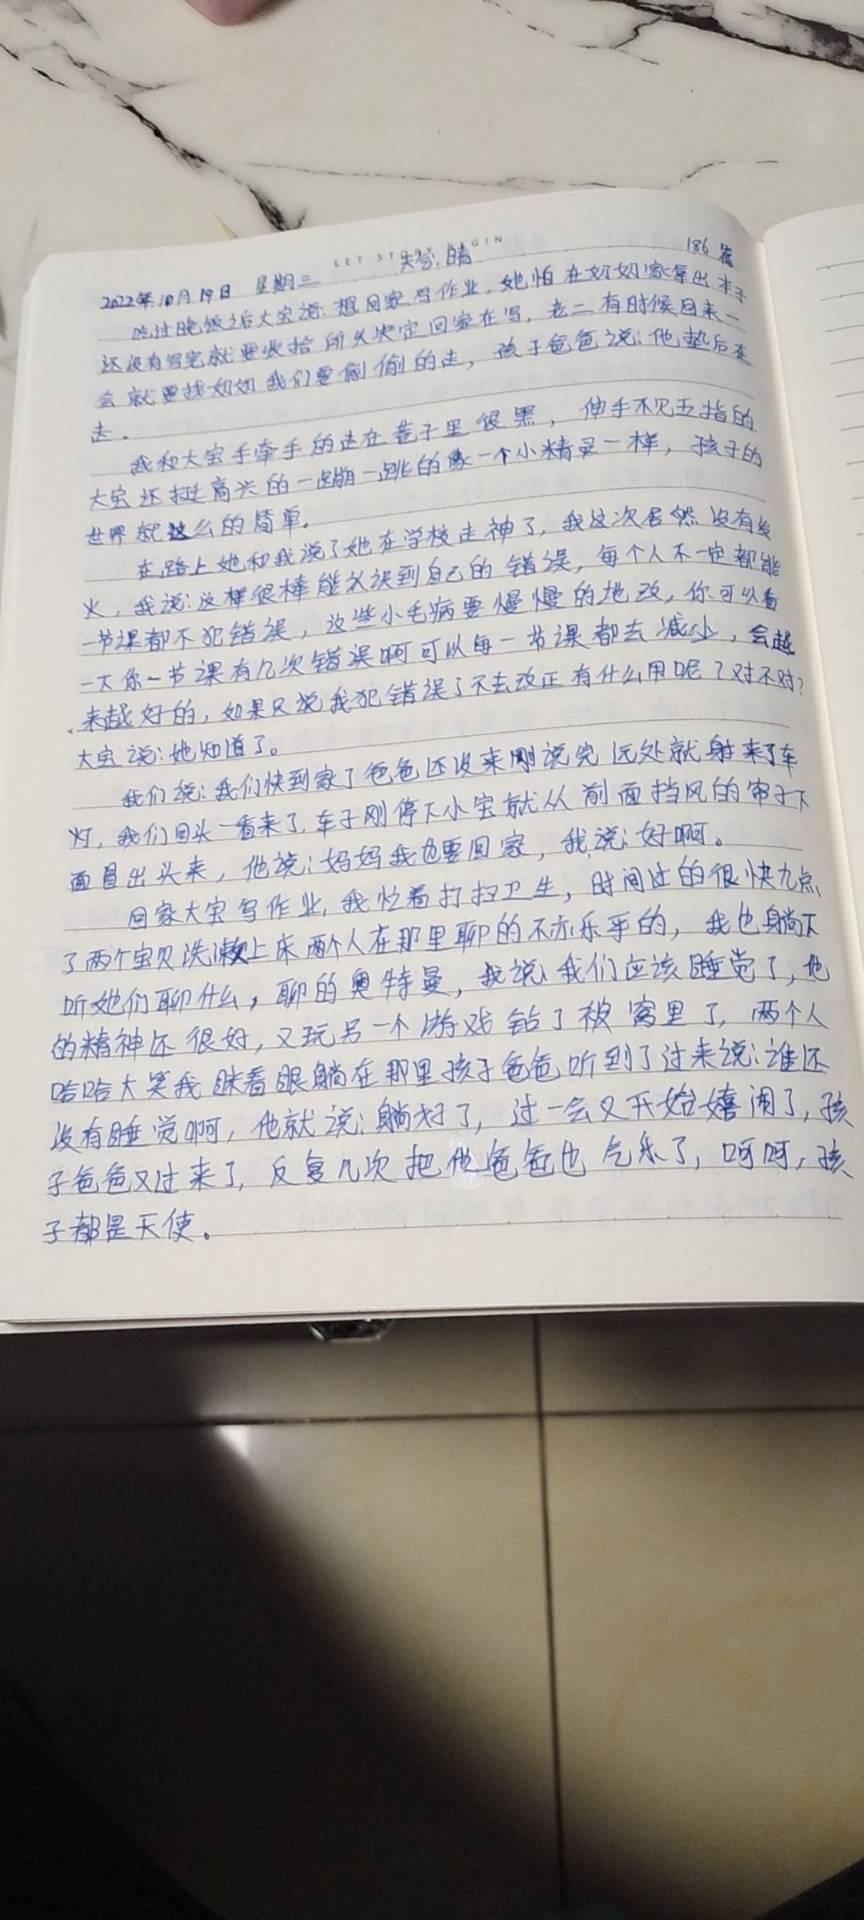 LET STORY BEGIN
2022年10月19日 星期三 天气:晴 186篇
吃过晚饭后大宝说:想回家写作业,她怕在奶奶家拿出本子
还没有写完就要收拾所以决定回家在写,老二有时候回来一
会就要找奶奶我们要偷偷的走,孩子爸爸说:他垫后在
走.
我和大宝手牵手的走在巷子里很黑,伸手不见五指的
大宝还挺高兴的一蹦一跳的像一个小精灵一样,孩子的
世界就这么的简单.
在路上她和我说了她在学校走神了,我这次居然没有发
火,我说:这样很棒能认识到自己的错误,每个人不一定都能
一节课都不犯错误,这些小毛病要慢慢的地改,你可以看
一下你一节课有几次错误啊可以每一节课都去减少,会越
来越好的,如果只说我犯错误了不去改正有什么用呢?对不对?
大宝说:她知道了。
我们说:我们快到家了爸爸还没来刚说完远处就射来了车
灯,我们回头一看来了,车子刚停下小宝就从前面挡风的帘子下
面冒出头来,他说:妈妈我也要回家,我说:好啊。
回家大宝写作业,我忙着打扫卫生,时间过的很快九点
了两个宝贝洗漱上床两个人在那里聊的不亦乐乎的,我也躺下
听她们聊什么,聊的奥特曼,我说:我们应该睡觉了,他
的精神还很好,又玩另一个游戏钻了被窝里了,两个人
哈哈大笑我眯着眼躺在那里孩子爸爸听到了过来说:谁还
没有睡觉啊,他就说:躺好了,过一会又开始嬉闹了,孩
子爸爸又过来了,反复几次把他爸爸也气乐了,呵呵,孩
子都是天使。